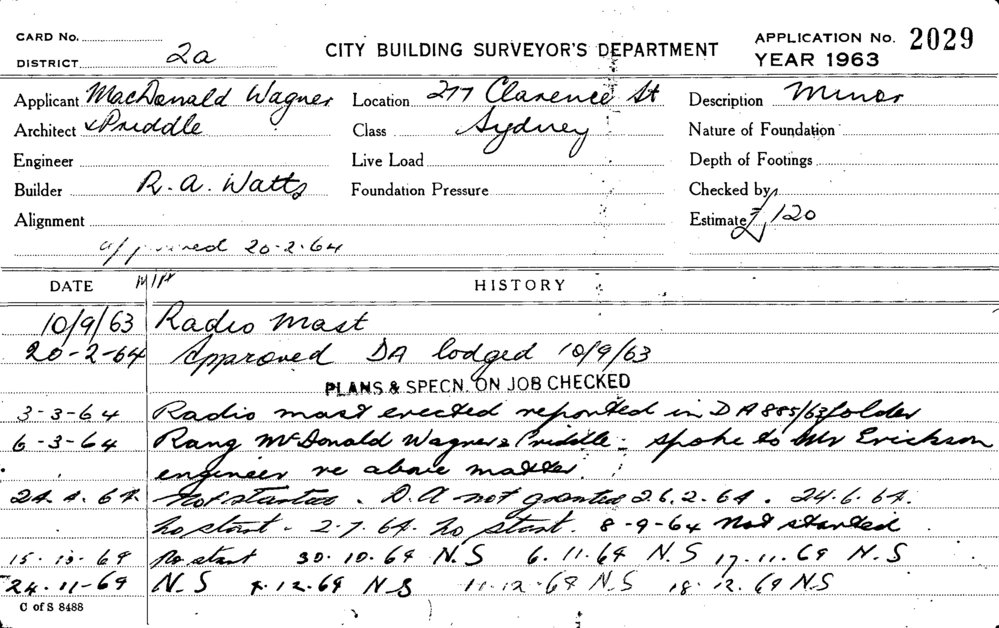 CARD No.
DISTRICT 2a
CITY BUILDING SURVEYOR'S DEPARTMENT
APPLICATION No. 2029
YEAR 1963
Applicant MacDonald Wagner
Location 277 Clarence St
Description Minor
Architect & Priddle
Class Sydney
Nature of Foundation
Engineer
Live Load
Depth of Footings
Builder R. A. Watts
Foundation Pressure
Checked by
Alignment
Estimate £120
approved 20-2-64
DATE
HISTORY
10/9/63 Radio Mast
20-2-64 Approved DA lodged 10/9/63
PLANS & SPECN. ON JOB CHECKED
3-3-64 Radio mast erected reported in DA 885/63 folder
6-3-64 Rang McDonald Wagner & Priddle - spoke to Mr Erickson
engineer re above matter
24.4.64 Not started. D.A not granted 26.2.64. 24.6.64.
No start - 2.7.64. No start. 8-9-64 Not started
15-10-64 No start 30.10.64 N.S 6.11.64 N.S 17.11.64 N.S
24.11-64 N.S 12.64 N.S 11.12.64 N.S 18.12.64 N.S
C of S 8488